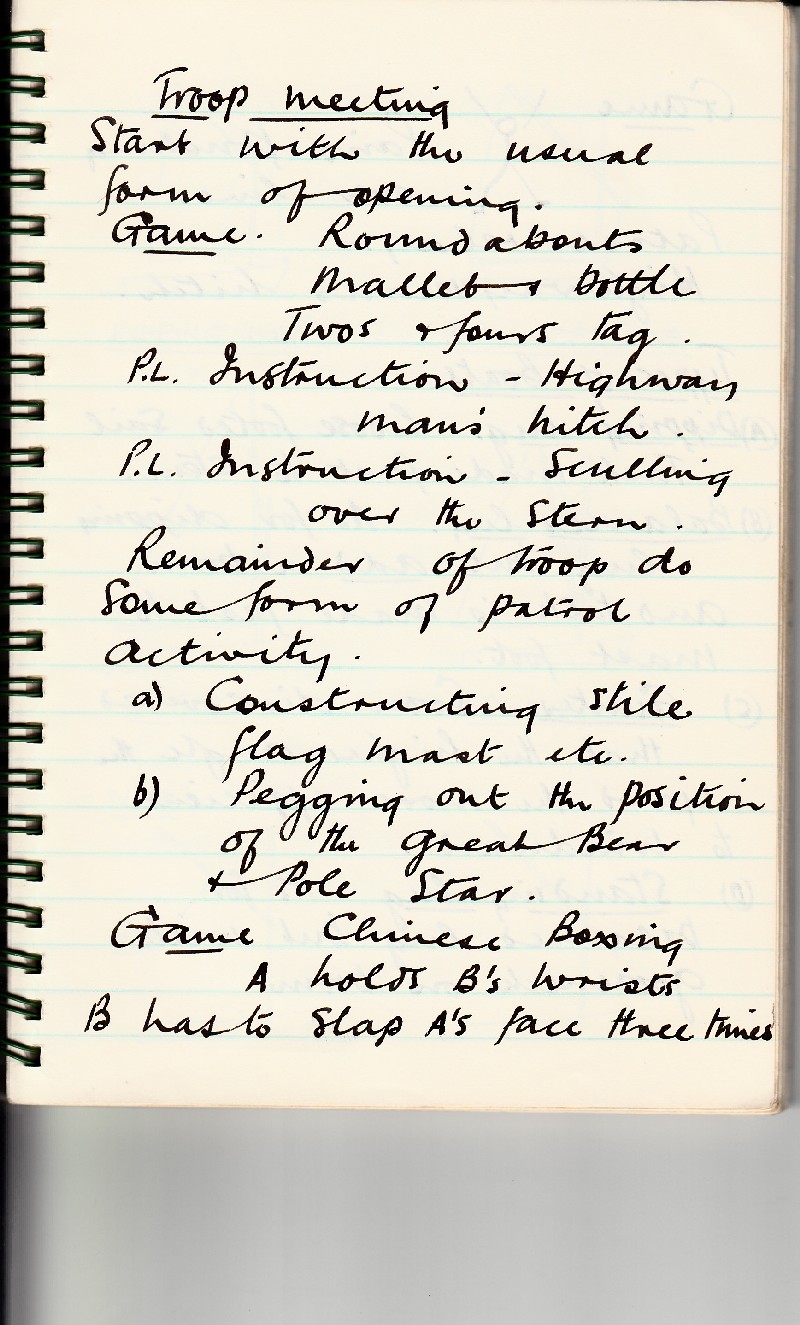 Troop meeting
Start with the usual
form of opening.
Game. Roundabouts
Mallet & bottle
Twos & fours tag.
P.L. Instruction - Highway
man's hitch.
P.L. Instruction - Sculling
over the stern.
Remainder of troop do
some form of patrol
activity.
a) Constructing stile
flag mast etc.
b) Pegging out the position
of the Great Bear
& Pole Star.
Game Chinese Boxing
A holds B's wrists
B has to slap A's face three times